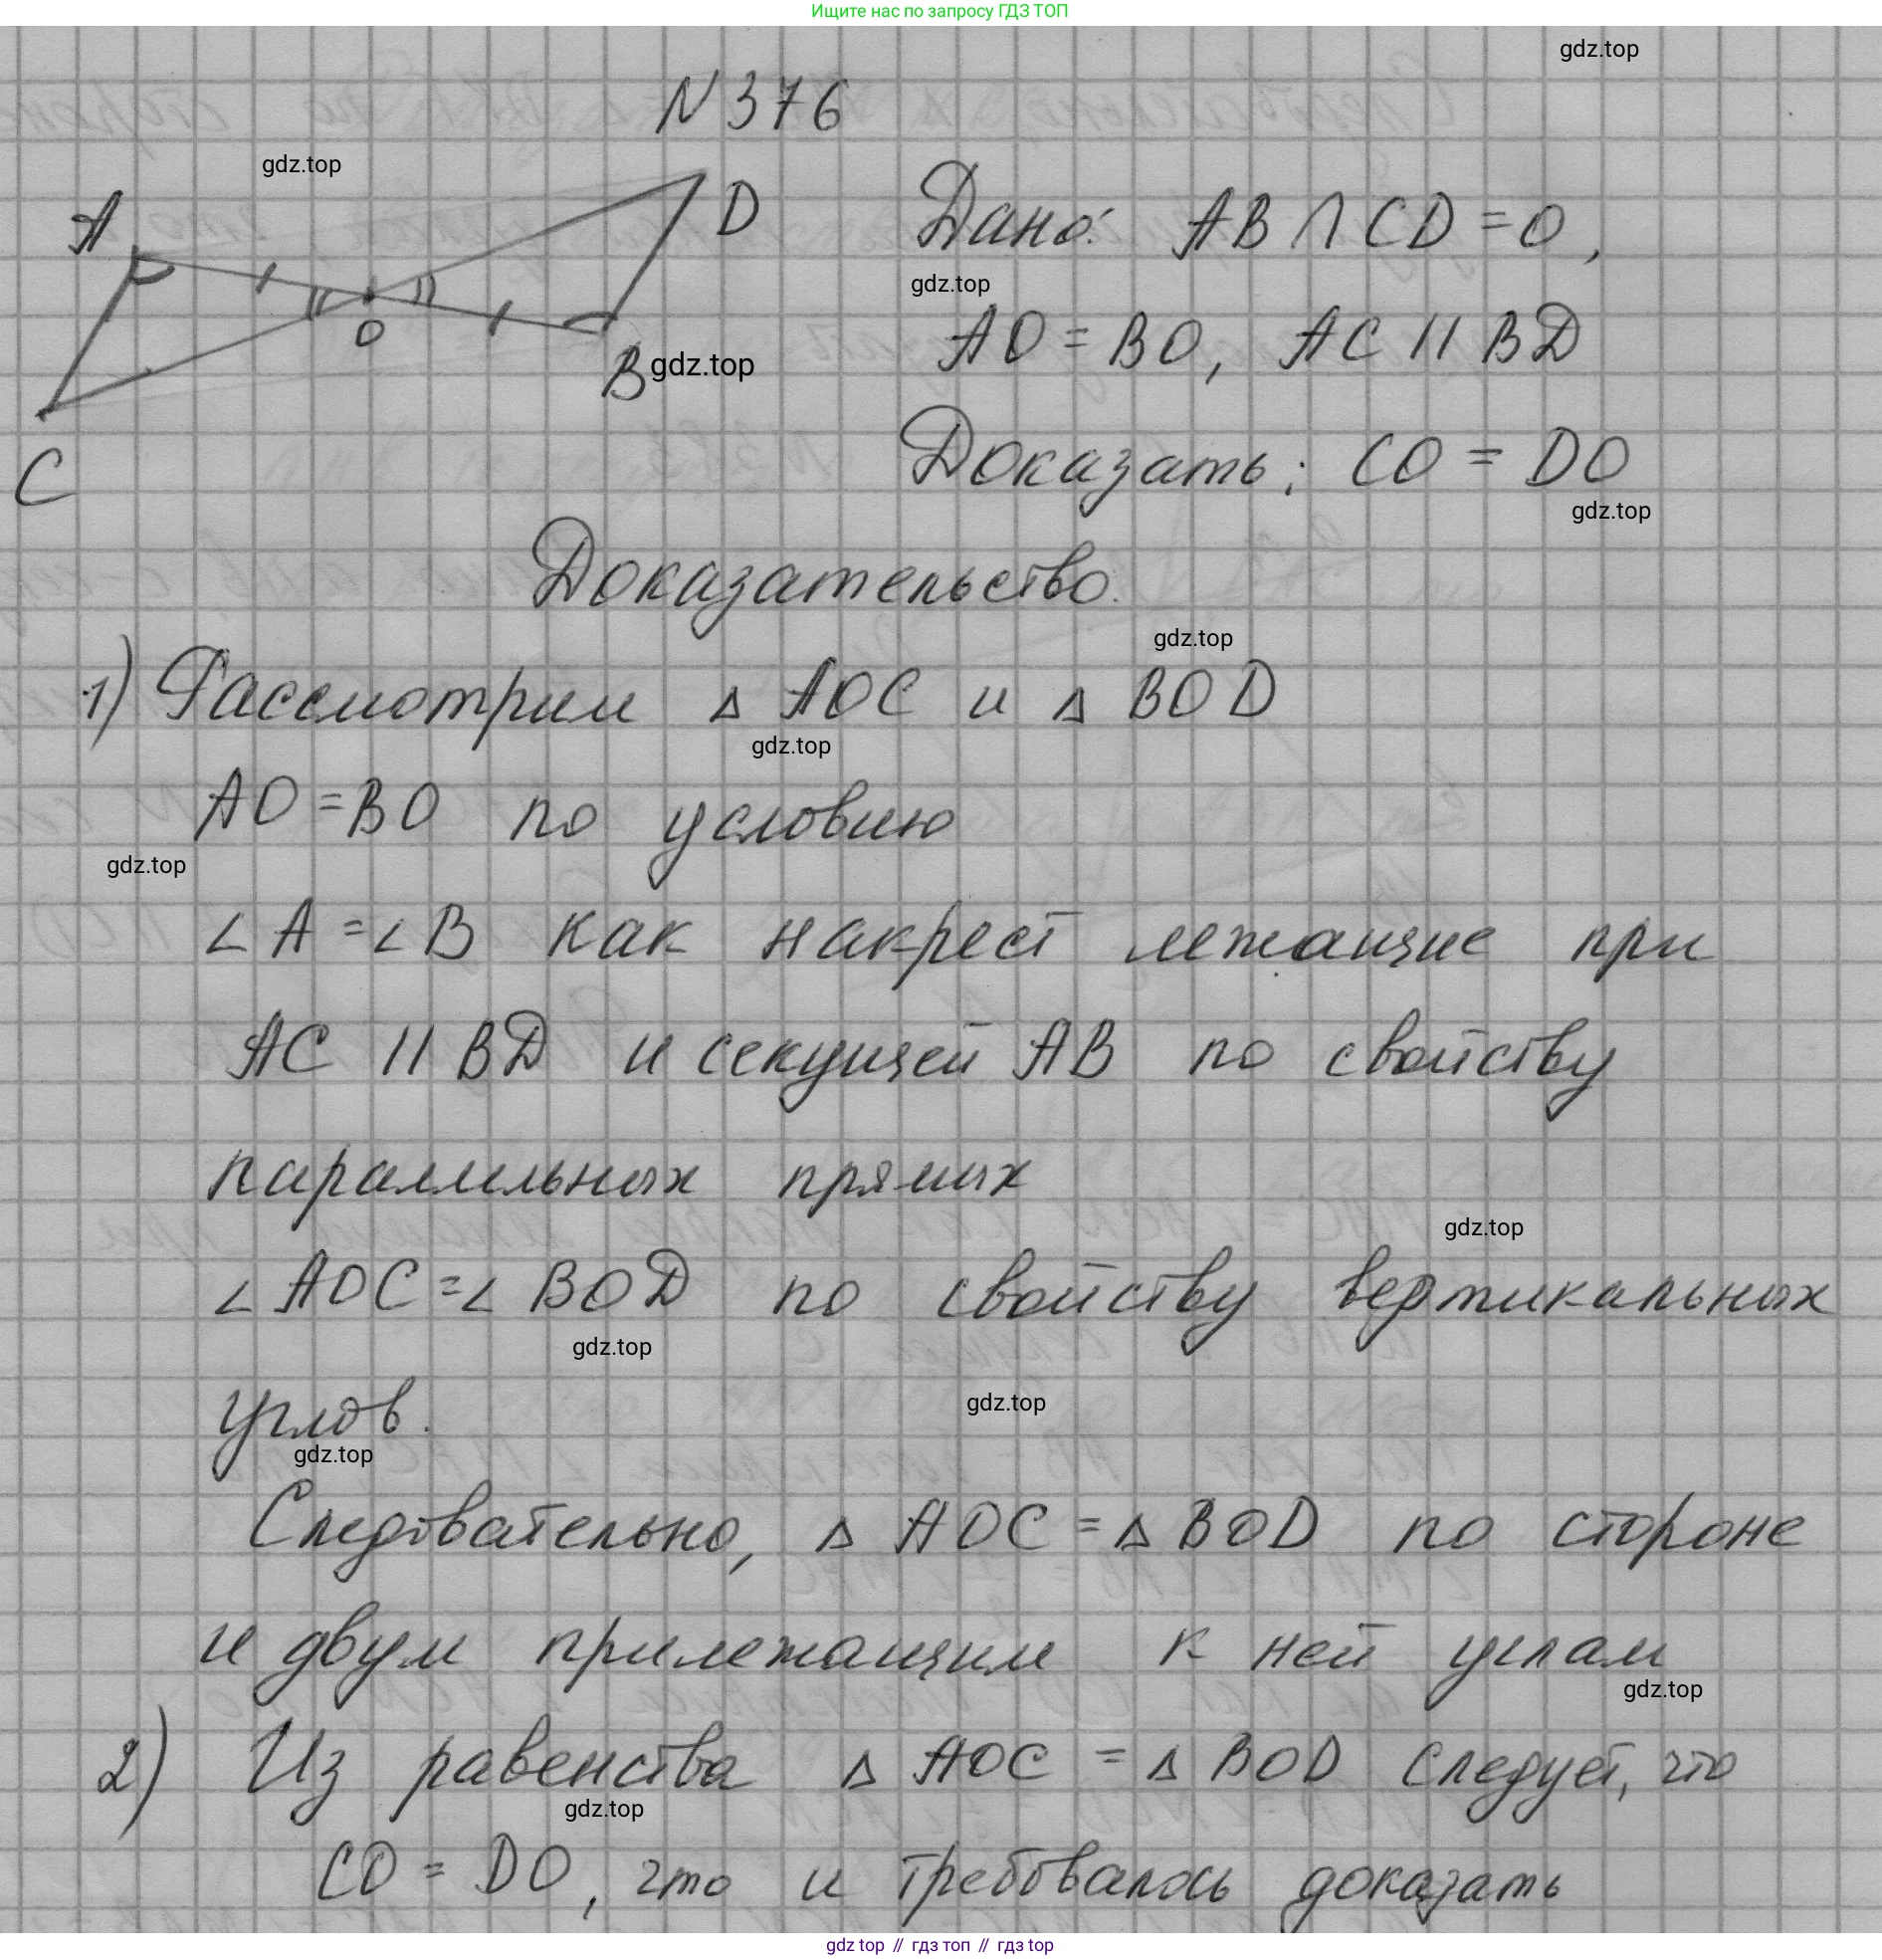 Ищите нас по запросу ГДЗ ТОП
gdz.top
N 376
gdz.top
A
D
O
B
C
gdz.top
Дано: AB ∩ CD = O,
gdz.top
AO = BO, AC || BD
Доказать: CO = DO
gdz.top
Доказательство.
gdz.top
1) Рассмотрим △ AOC и △ BOD
gdz.top
AO = BO по условию
gdz.top
∠ A = ∠ B как накрест лежащие при
AC || BD и секущей AB по свойству
параллельных прямых
gdz.top
∠ AOC = ∠ BOD по свойству вертикальных
gdz.top
углов.
gdz.top
gdz.top
Следовательно, △ AOC = △ BOD по стороне
и двум прилежащим к ней углам
gdz.top
2) Из равенства △ AOC = △ BOD следует, что
gdz.top
CO = DO, что и требовалось доказать
gdz top // гдз топ // gdz.top